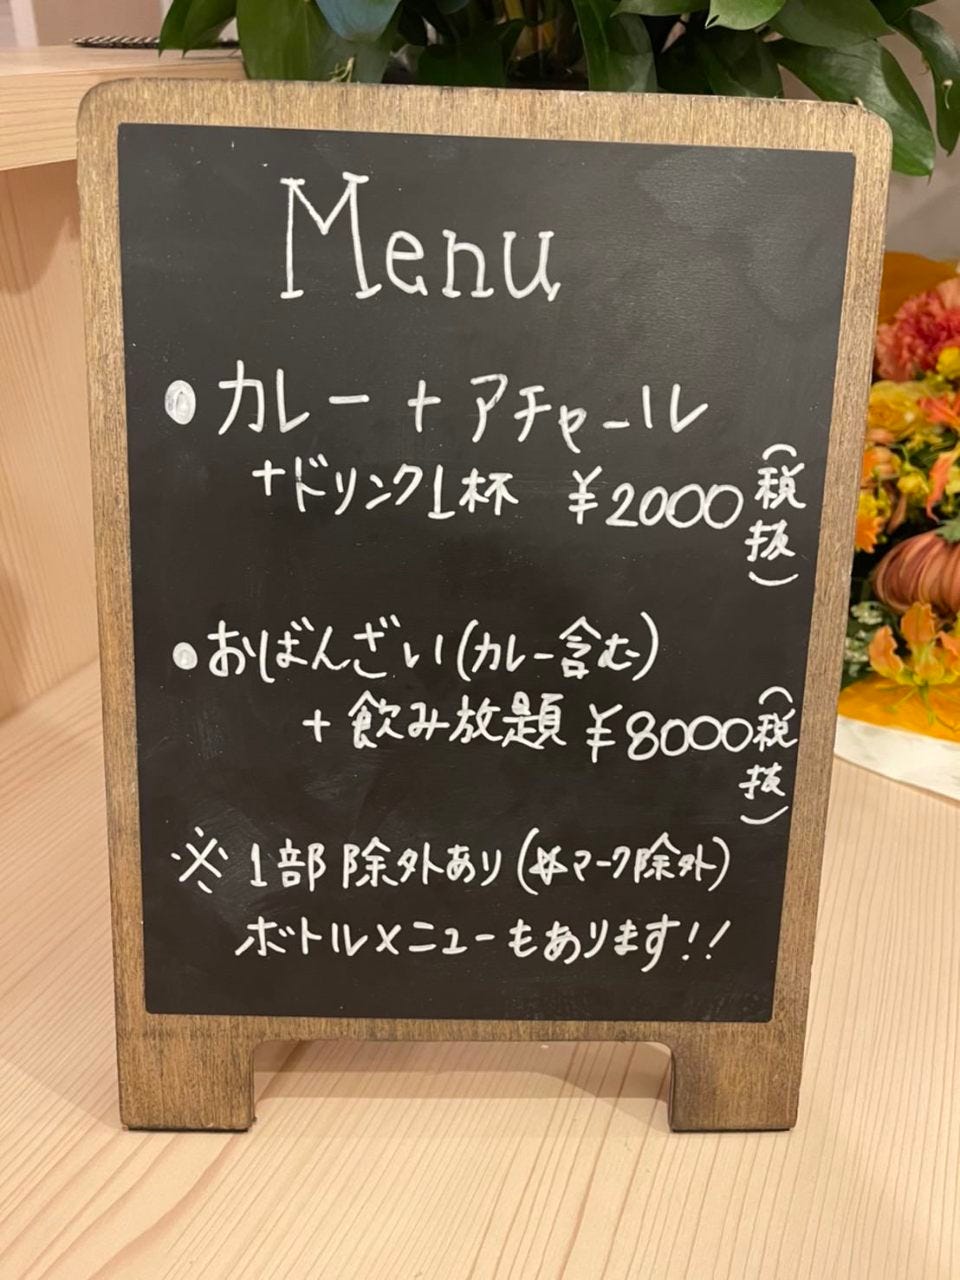 Menu
●カレー+アチャール
+ドリンク1杯 ¥2000(税抜)
●おばんざい(カレー含む)
+飲み放題 ¥8000(税抜)
※1部除外あり(✡マーク除外)
ボトルメニューもあります!!